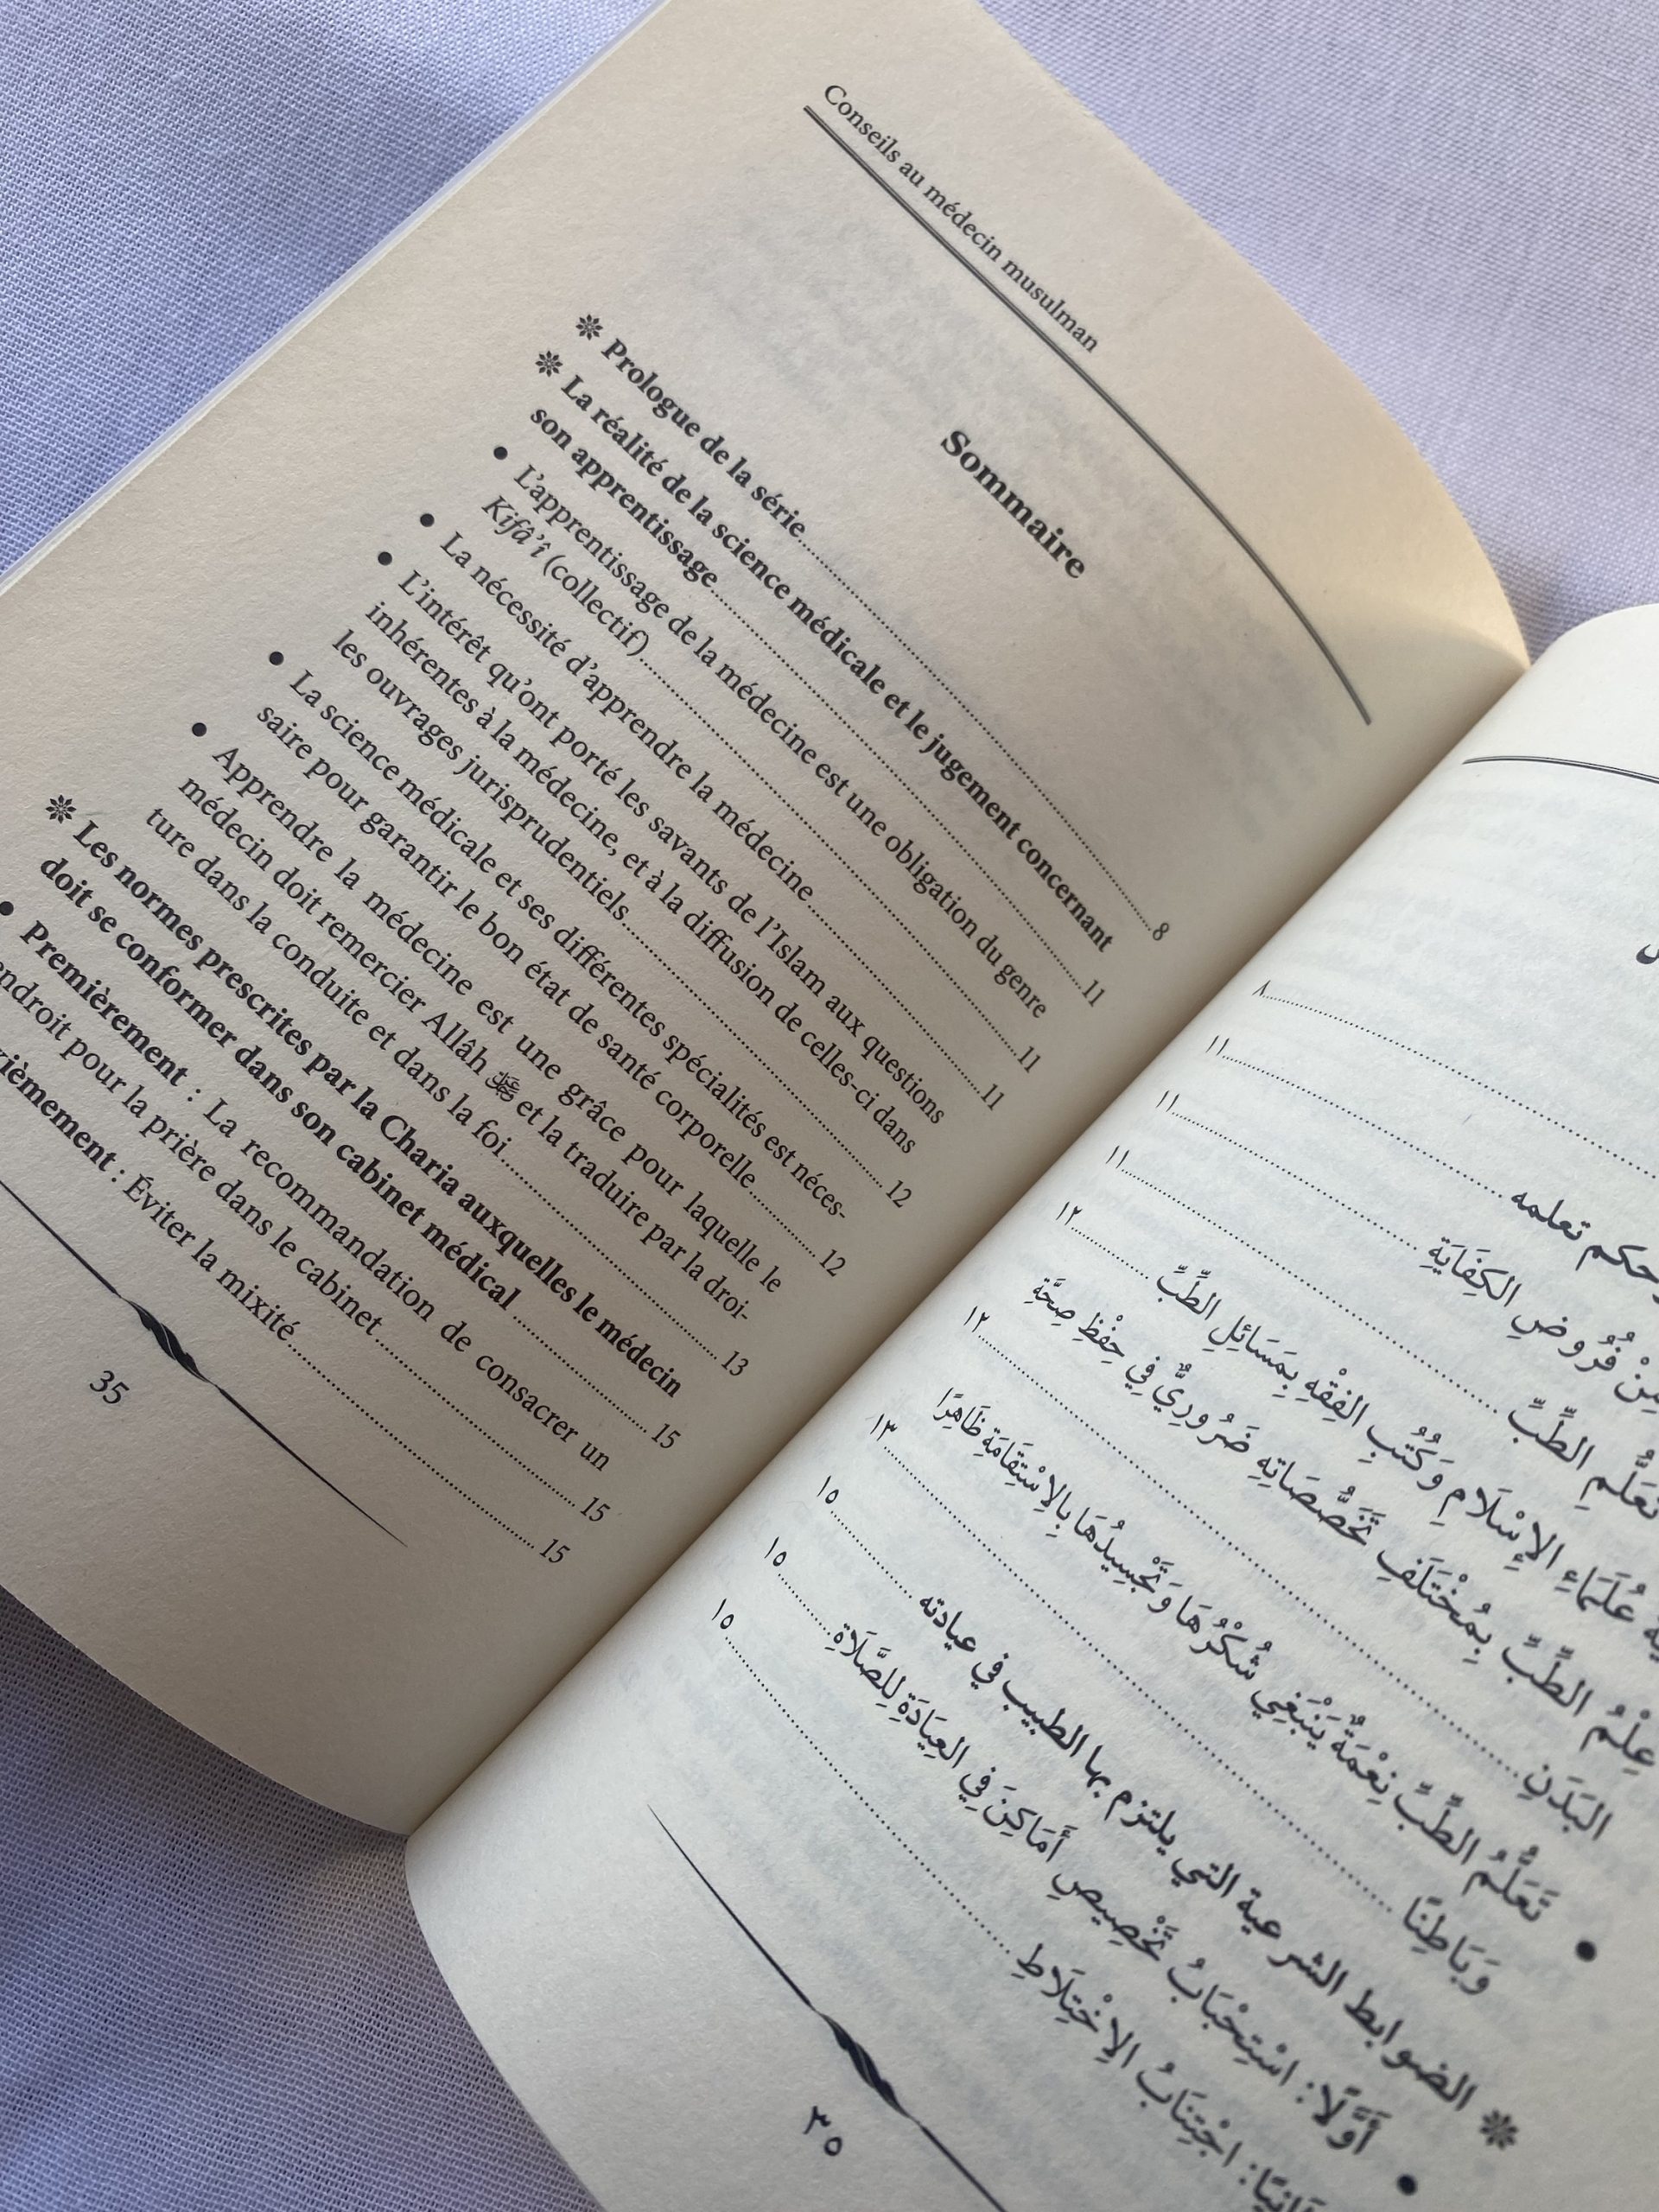 Conseils au médecin musulman
Sommaire
❊ Prologue de la série........ 8
❊ La réalité de la science médicale et le jugement concernant
son apprentissage........ 11
• L'apprentissage de la médecine est une obligation du genre
Kifâ'î (collectif)........ 11
• La nécessité d'apprendre la médecine........ 11
• L'intérêt qu'ont porté les savants de l'Islam aux questions
inhérentes à la médecine, et à la diffusion de celles-ci dans
les ouvrages jurisprudentiels........ 12
• La science médicale et ses différentes spécialités est néces-
saire pour garantir le bon état de santé corporelle........ 12
• Apprendre la médecine est une grâce pour laquelle le
médecin doit remercier Allâh ﷻ et la traduire par la droi-
ture dans la conduite et dans la foi........ 13
❊ Les normes prescrites par la Charia auxquelles le médecin
doit se conformer dans son cabinet médical........ 15
• Premièrement : La recommandation de consacrer un
endroit pour la prière dans le cabinet........ 15
: Éviter la mixité........ 15
35
........ ٨
وحكم تعلمه........ ١١
مِنْ فُرُوضِ الكِفَايَةِ........ ١١
تَعَلُّمِ الطِّبِّ........ ١١
عُلَمَاءِ الإِسْلَامِ وَكُتُبِ الفِقْهِ بِمَسَائِلِ الطِّبِّ........ ١٢
عِلْمُ الطِّبِّ بِمُخْتَلَفِ تَخَصُّصَاتِهِ ضَرُورِيٌّ فِي حِفْظِ صِحَّةِ
البَدَنِ........ ١٢
• تَعَلُّمُ الطِّبِّ نِعْمَةٌ يَنْبَغِي شُكْرُهَا وَتَجْسِيدُهَا بِالِاسْتِقَامَةِ ظَاهِرًا
وَبَاطِنًا........ ١٣
❊ الضوابط الشرعية التي يلتزم بها الطبيب في عيادته........ ١٥
• أَوَّلًا: اسْتِحْبَابُ تَخْصِيصِ أَمَاكِنَ فِي العِيَادَةِ لِلصَّلَاةِ........ ١٥
: اجْتِنَابُ الِاخْتِلَاطِ........ ١٥
٣٥